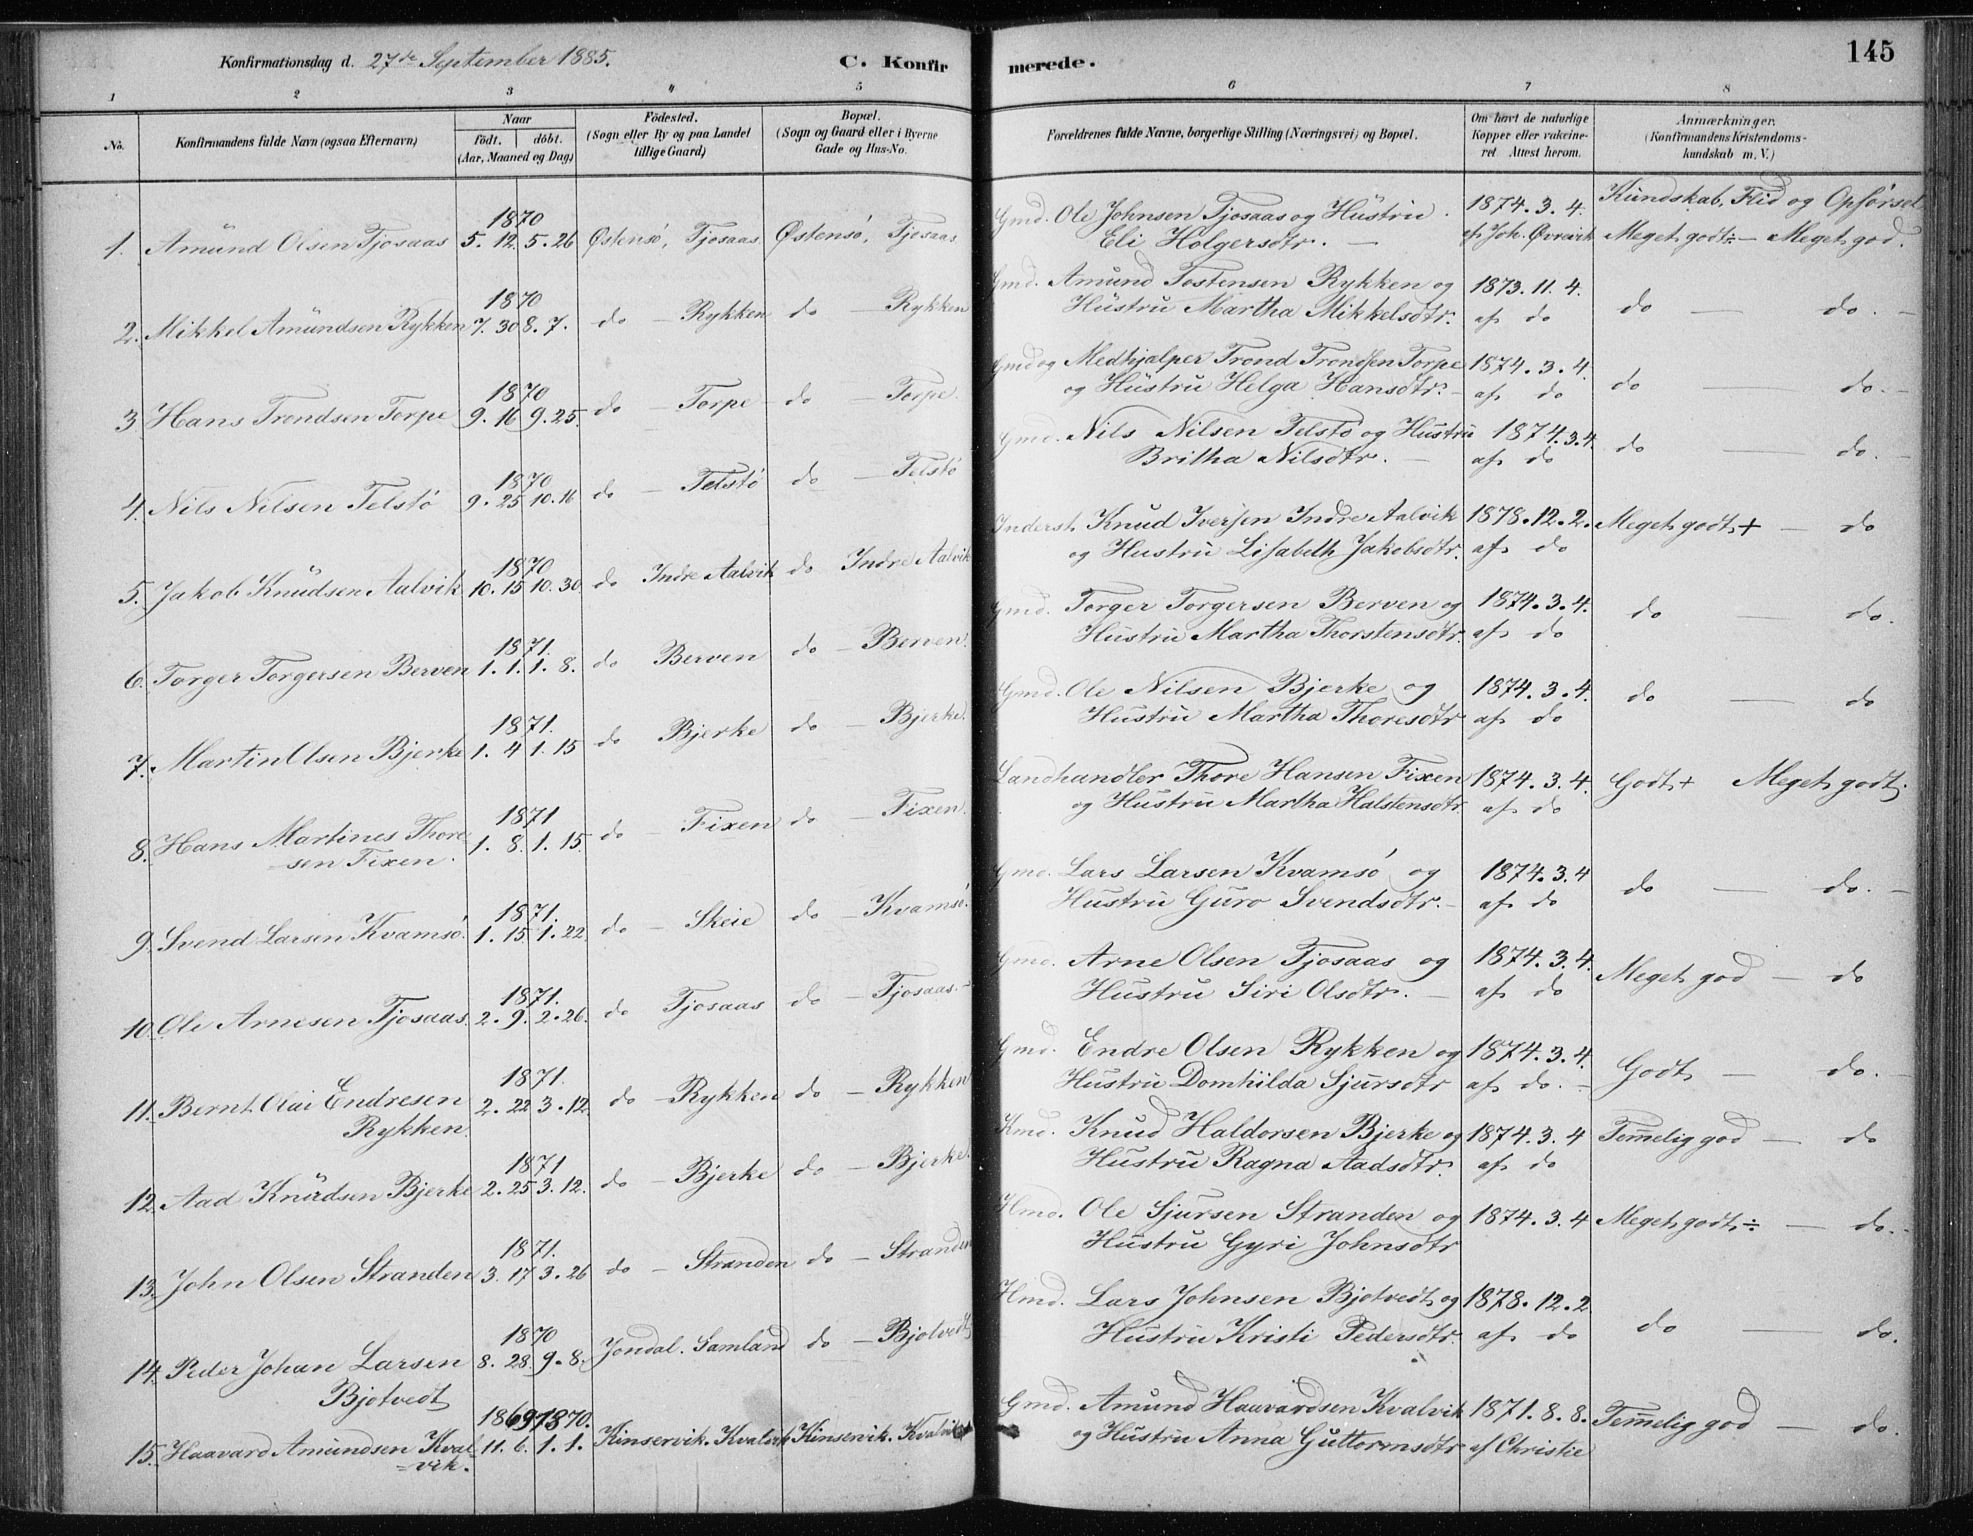 Konfirmationsdag d. 27de September 1885.
C. Konfirmerede.
145
1 2 3 4 5 6 7 8
No.
Konfirmandens fulde Navn (ogsaa Efternavn)
Naar
födt. döbt.
(Aar, Maaned og Dag)
Födested.
(Sogn eller By og paa Landet
tillige Gaard)
Bopæl.
(Sogn og Gaard eller i Byerne
Gade og Hus-No.
Forældrenes fulde Navne, borgerlige Stilling (Næringsvei) og Bopæl.
Om havt de naturlige
Kopper eller vakcine-
ret. Attest herom.
Anmærkninger.
(Konfirmandens Kristendoms-
kundskab m. V.)
Kundskab, Flid og Opförsel
1. Amund Olsen Tjosaas 1870 5. 12. 5. 26 Östensö, Tjosaas Östensö, Tjosaas Gmd. Ole Johnsen Tjosaas og Hustru 1874. 3. 4.
Eli Holgersdtr. — af Joh. Övrevik Meget godt ÷ — Meget god.
2. Mikkel Amundsen Rykken 1870 7. 30 8. 7. do — Rykken do — Rykken Gmd. Amund Tostensen Rykken og 1873. 11. 4. do — do. —
Hustru Martha Mikkelsdtr. af do
3. Hans Trondsen Torpe 1870 9. 16 9. 25. do — Torpe do — Torpe. Gmd og Medhjælper Trond Trondsen Torpe 1874. 3. 4. do — do. —
og Hustru Helga Hansdtr. — af do
4. Nils Nilsen Telstö 1870 9. 25 10. 16 do — Telstö do — Telstö Gmd. Nils Nilsen Telstö og Hustru 1874. 3. 4. do — do. —
Britha Nilsdtr. — af do
5. Jakob Knudsen Aalvik 1870 10. 15 10. 30. do Indre Aalvik do Indre Aalvik Inderst. Knud Iversen Indre Aalvik 1878. 12. 2. Meget godt + — do
og Hustru Lisabeth Jakobsdtr. af do
6. Torger Torgersen Berven 1871. 1. 1. 1. 8. do Berven do — Berven. Gmd. Torger Torgersen Berven og 1874. 3. 4. do — do.
Hustru Martha Thorstensdtr. af do
7. Martin Olsen Bjerke 1871. 1. 4 1. 15 do Bjerke do — Bjerke. Gmd. Ole Nilsen Bjerke og 1874. 3. 4. do — do
Hustru Martha Thoresdtr af do
8. Hans Martines Thore- 1871 1. 8. 1. 15. do — Fixen do — Fixen. Landhandler Thore Hansen Fixen 1874. 3. 4. Godt + Meget godt.
sen Fixen. og Hustru Martha Halstensdtr. af do
9. Svend Larsen Kvamsö. 1871. 1. 15 1. 22. do — Skeie do — Kvamsö. Gmd. Lars Larsen Kvamsö og 1874. 3. 4 do — do. —
Hustru Guro Svendsdtr. — af do
10. Ole Arnesen Tjosaas. 1871. 2. 9. 2. 26. do Tjosaas do — Tjosaas. — Gmd. Arne Olsen Tjosaas og 1874. 3. 4. Meget god — do
Hustru Siri Olsdtr. — af do
11. Bernt Olai Endresen 1871. 2. 22 3. 12. do — Rykken do — Rykken Gmd. Endre Olsen Rykken og 1874. 3. 4. Godt — do. —
Rykken. Hustru Domhilda Sjursdtr af do. —
12. Aad Knudsen Bjerke 1871 2. 25 3. 12. do — Bjerke do — Bjerke. Kmd. Knud Haldorsen Bjerke og 1874. 3. 4 Temmelig god — do
Hustru Ragna Aadsdtr. af do
13. John Olsen Stranden 1871. 3. 17 3. 26 do — Stranden do — Stranden Hmd. Ole Sjursen Stranden og 1874. 3. 4 Meget godt ÷ — do. —
Hustru Gyri Johnsdtr
14. Peder Johan Larsen 1870 8. 28. 9. 8. Jondal. Samland do — Bjotvedt Hmd. Lars Johnsen Bjotvedt og 1878. 12. 2 do — do.
Bjotvedt Hustru Kristi Pedersdtr. af do
15. Haavard Amundsen Kval- 1869 1870. 11. 6. 1. 1. Kinservik. Kvalvik Kinservik. Kvalvik Gmd. Amund Haavardsen Kvalvik 1871. 8. 8. Temmelig god — do.
vik. og Hustru Anna Guttormsdtr af Christie